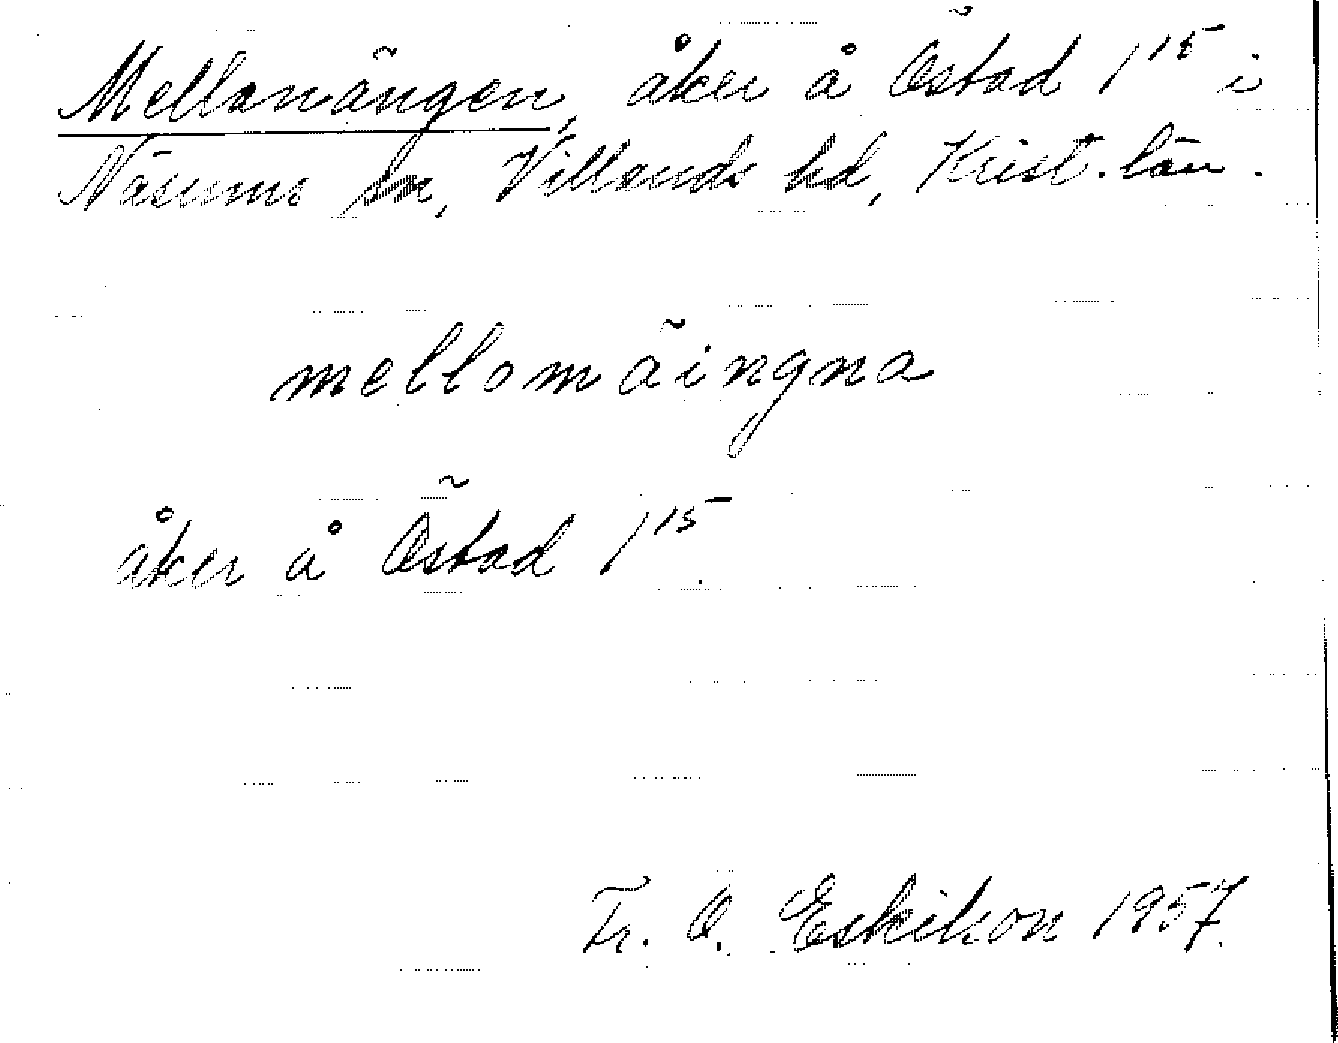 Mellanängen, åker å Östad 1¹⁵ i
Näsums sn, Villands hd, Krist. län.
mellomäingna
åker å Östad 1¹⁵
Fr. O. Eskilson 1957.